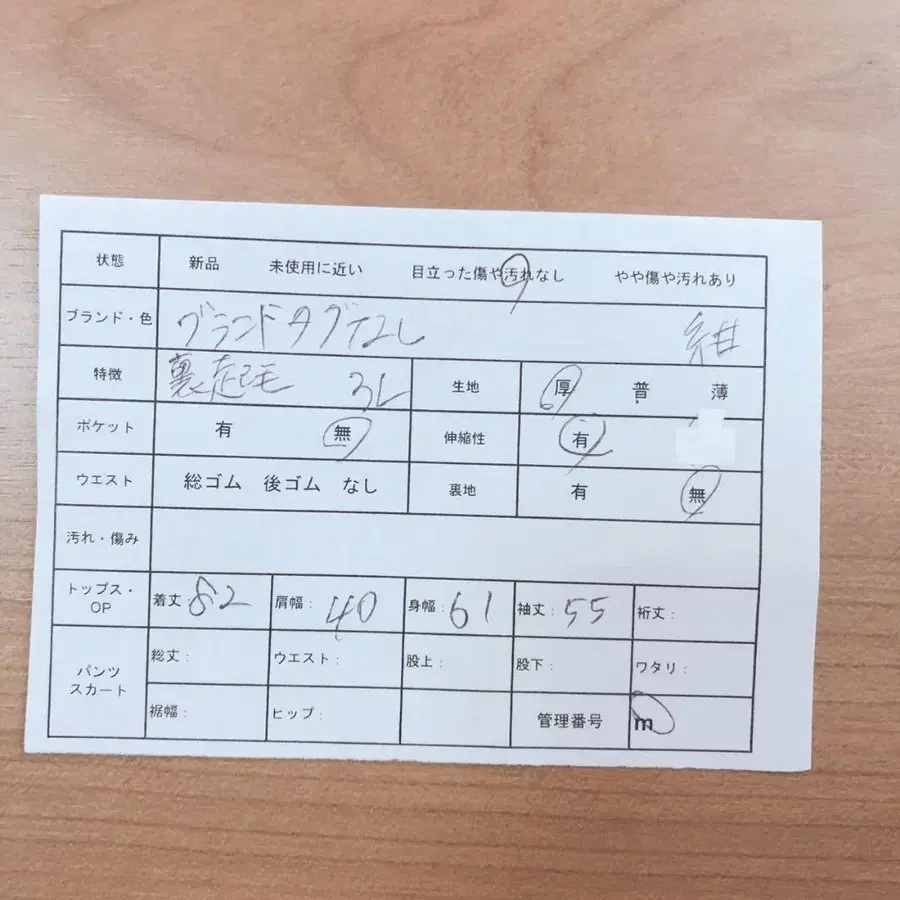 状態 新品 未使用に近い 目立った傷や汚れなし やや傷や汚れあり
ブランド・色 ブランドタグなし 紺
特徴 裏起毛 3L 生地 厚 普 薄
ポケット 有 無 伸縮性 有
ウエスト 総ゴム 後ゴム なし 裏地 有 無
汚れ・傷み
トップス・OP 着丈 82 肩幅: 40 身幅: 61 袖丈: 55 裄丈:
パンツ スカート 総丈: ウエスト: 股上: 股下: ワタリ:
裾幅: ヒップ: 管理番号 m